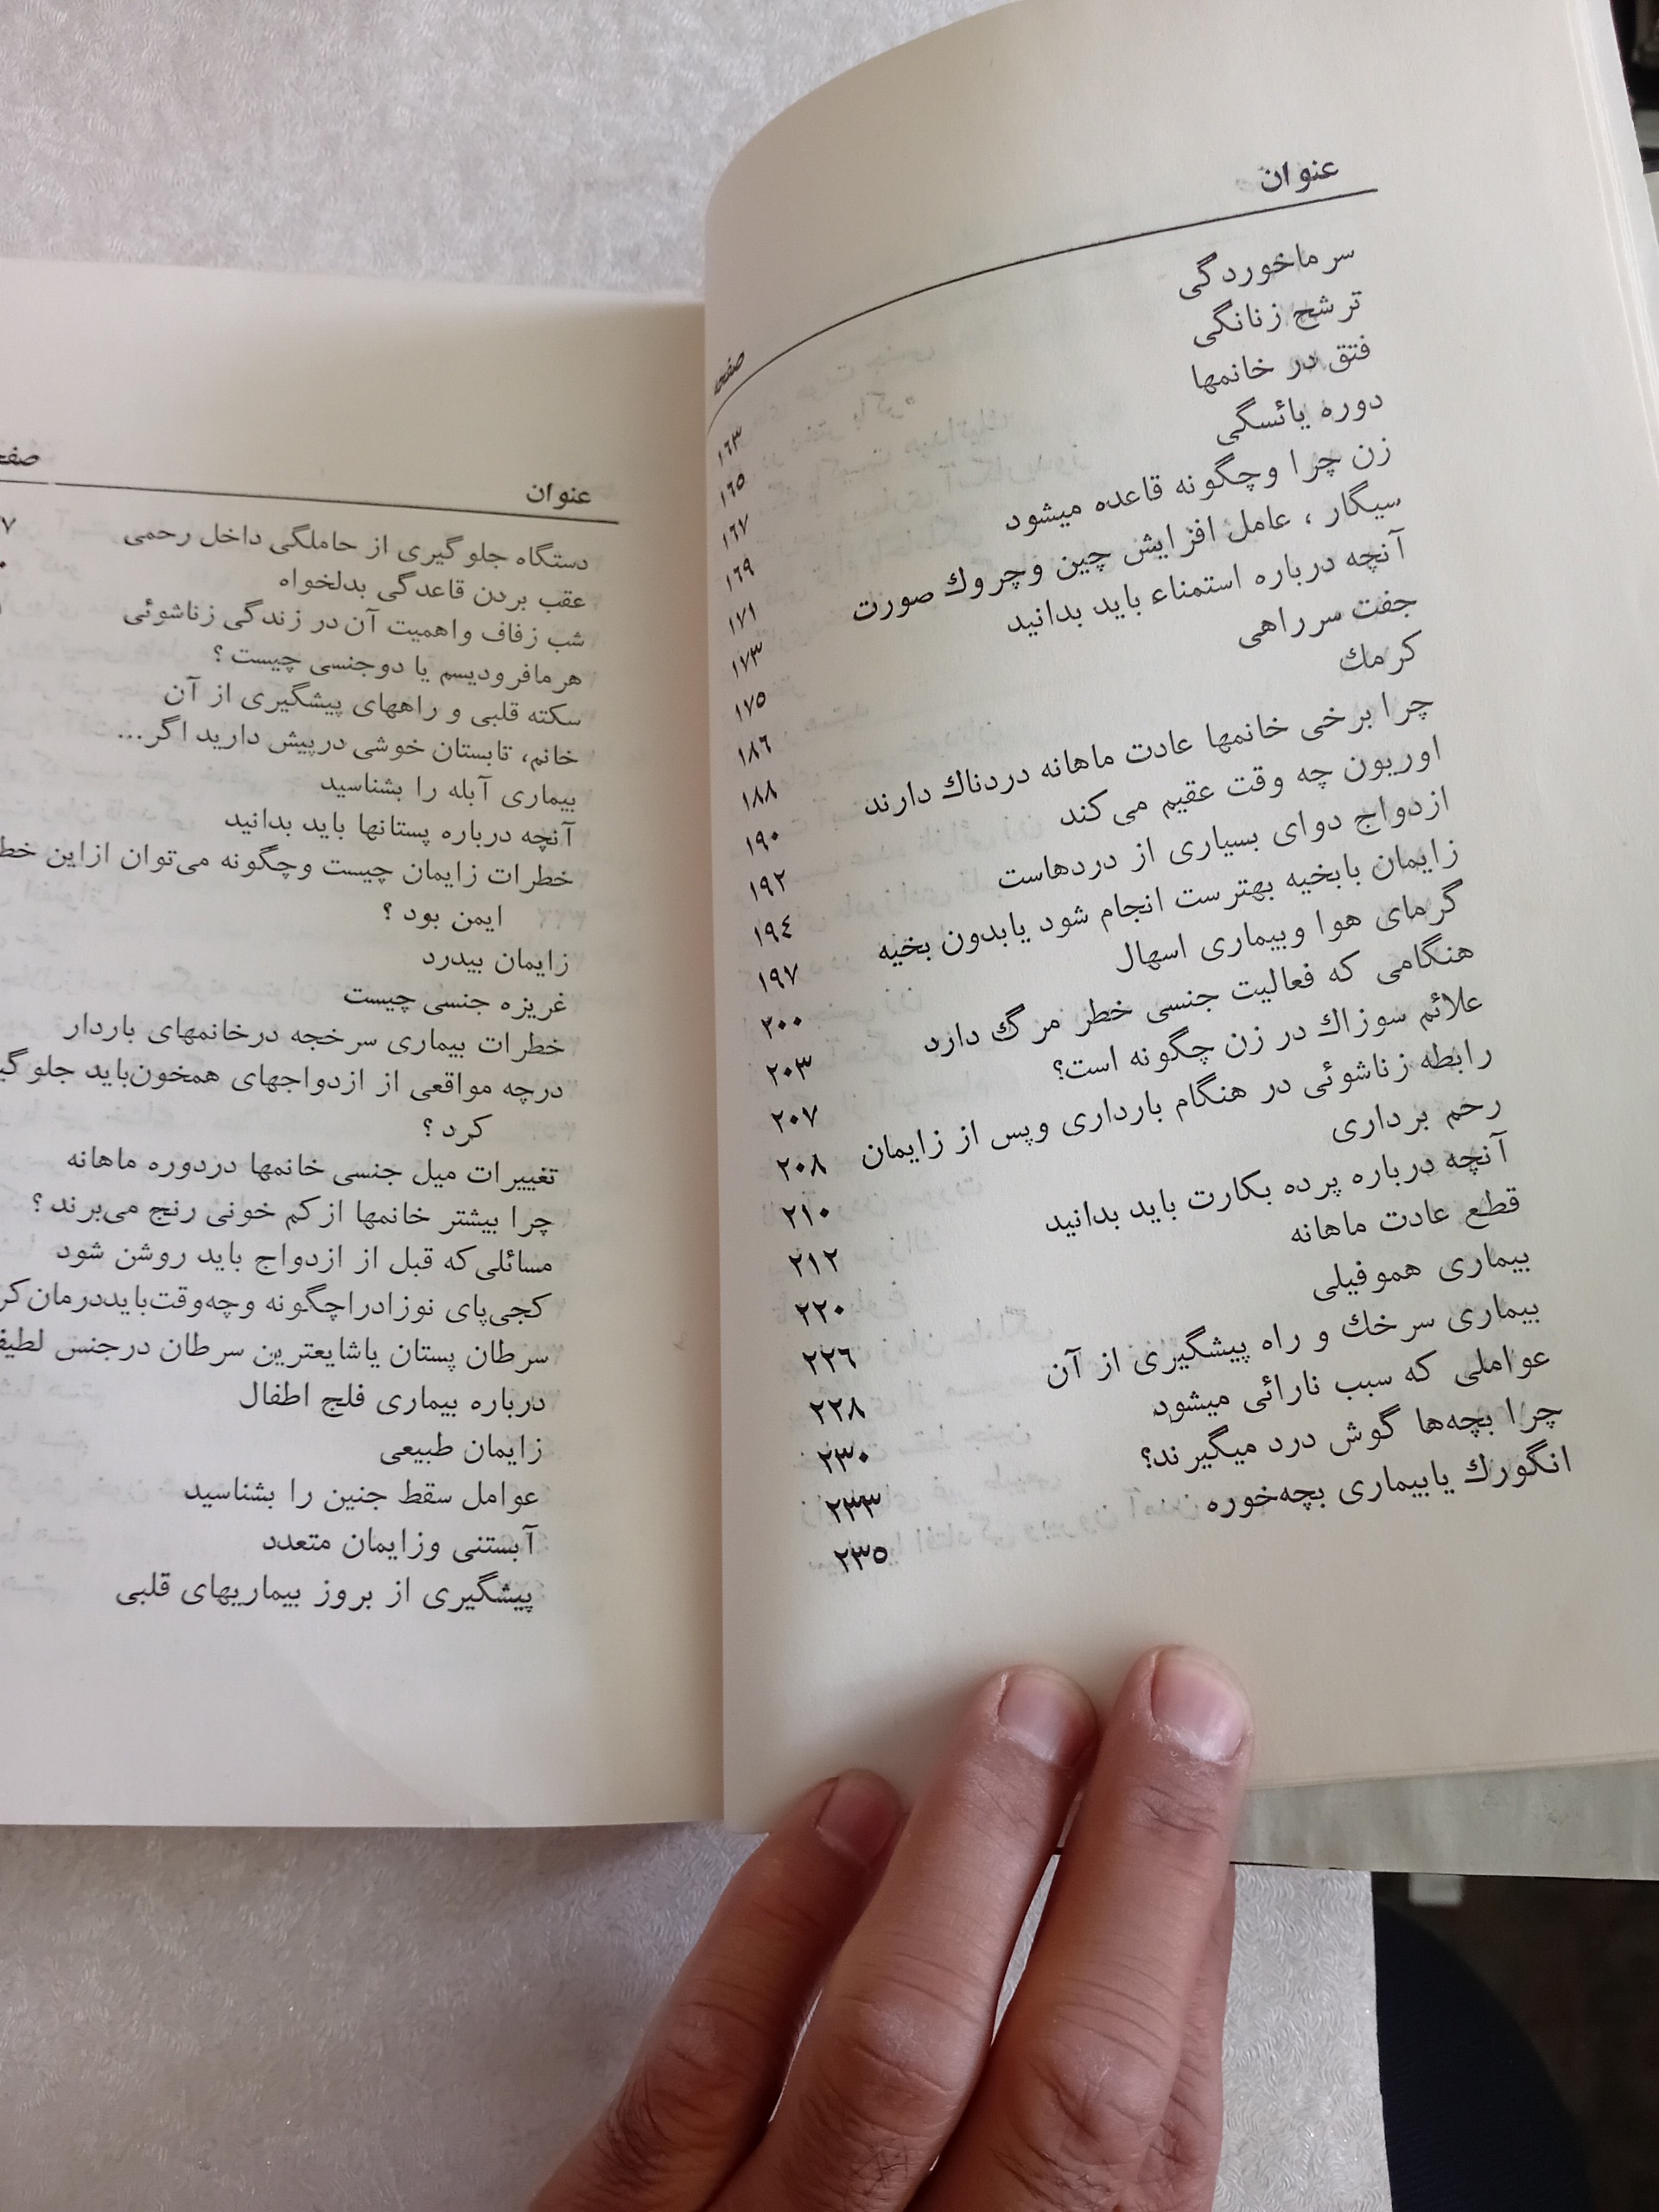 عنوان صفحه
سرماخوردگی ۱۶۳
ترشح زنانگی ۱۶۵
فتق در خانمها ۱۶۷
دوره یائسگی ۱۶۹
زن چرا وچگونه قاعده میشود ۱۷۱
سیگار ، عامل افزایش چین وچروك صورت ۱۷۳
آنچه درباره استمناء باید بدانید ۱۷۵
جفت سرراهی ۱۸۶
کرمك ۱۸۸
چرا برخی خانمها عادت ماهانه دردناك دارند ۱۹۰
اوریون چه وقت عقیم می‌کند ۱۹۲
ازدواج دوای بسیاری از دردهاست ۱۹٤
زایمان بابخیه بهترست انجام شود یابدون بخیه ۱۹۷
گرمای هوا وبیماری اسهال ۲۰۰
هنگامی که فعالیت جنسی خطر مرگ دارد ۲۰۳
علائم سوزاك در زن چگونه است؟ ۲۰۷
رابطه زناشوئی در هنگام بارداری وپس از زایمان ۲۰۸
رحم برداری ۲۱۰
آنچه درباره پرده بکارت باید بدانید ۲۱۲
قطع عادت ماهانه ۲۲۰
بیماری هموفیلی ۲۲٦
بیماری سرخك و راه پیشگیری از آن ۲۲۸
عواملی که سبب نازائی میشود ۲۳۰
چرا بچه‌ها گوش درد میگیرند؟ ۲۳۳
انگورك یابیماری بچه‌خوره ۲۳۵
عنوان
دستگاه جلوگیری از حاملگی داخل رحمی
عقب بردن قاعدگی بدلخواه
شب زفاف واهمیت آن در زندگی زناشوئی
هرمافرودیسم یا دوجنسی چیست ؟
سکته قلبی و راههای پیشگیری از آن
خانم، تابستان خوشی درپیش دارید اگر...
بیماری آبله را بشناسید
آنچه درباره پستانها باید بدانید
خطرات زایمان چیست وچگونه می‌توان ازاین
ایمن بود ؟
زایمان بیدرد
غریزه جنسی چیست
خطرات بیماری سرخجه درخانمهای باردار
درچه مواقعی از ازدواجهای همخون‌باید
کرد ؟
تغییرات میل جنسی خانمها دردوره ماهانه
چرا بیشتر خانمها ازکم خونی رنج می‌برند ؟
مسائلی‌که قبل از ازدواج باید روشن شود
کجی‌پای نوزادراچگونه وچه‌وقت‌بایددرمان
سرطان پستان یاشایعترین سرطان درجنس
درباره بیماری فلج اطفال
زایمان طبیعی
عوامل سقط جنین را بشناسید
آبستنی وزایمان متعدد
پیشگیری از بروز بیماریهای قلبی